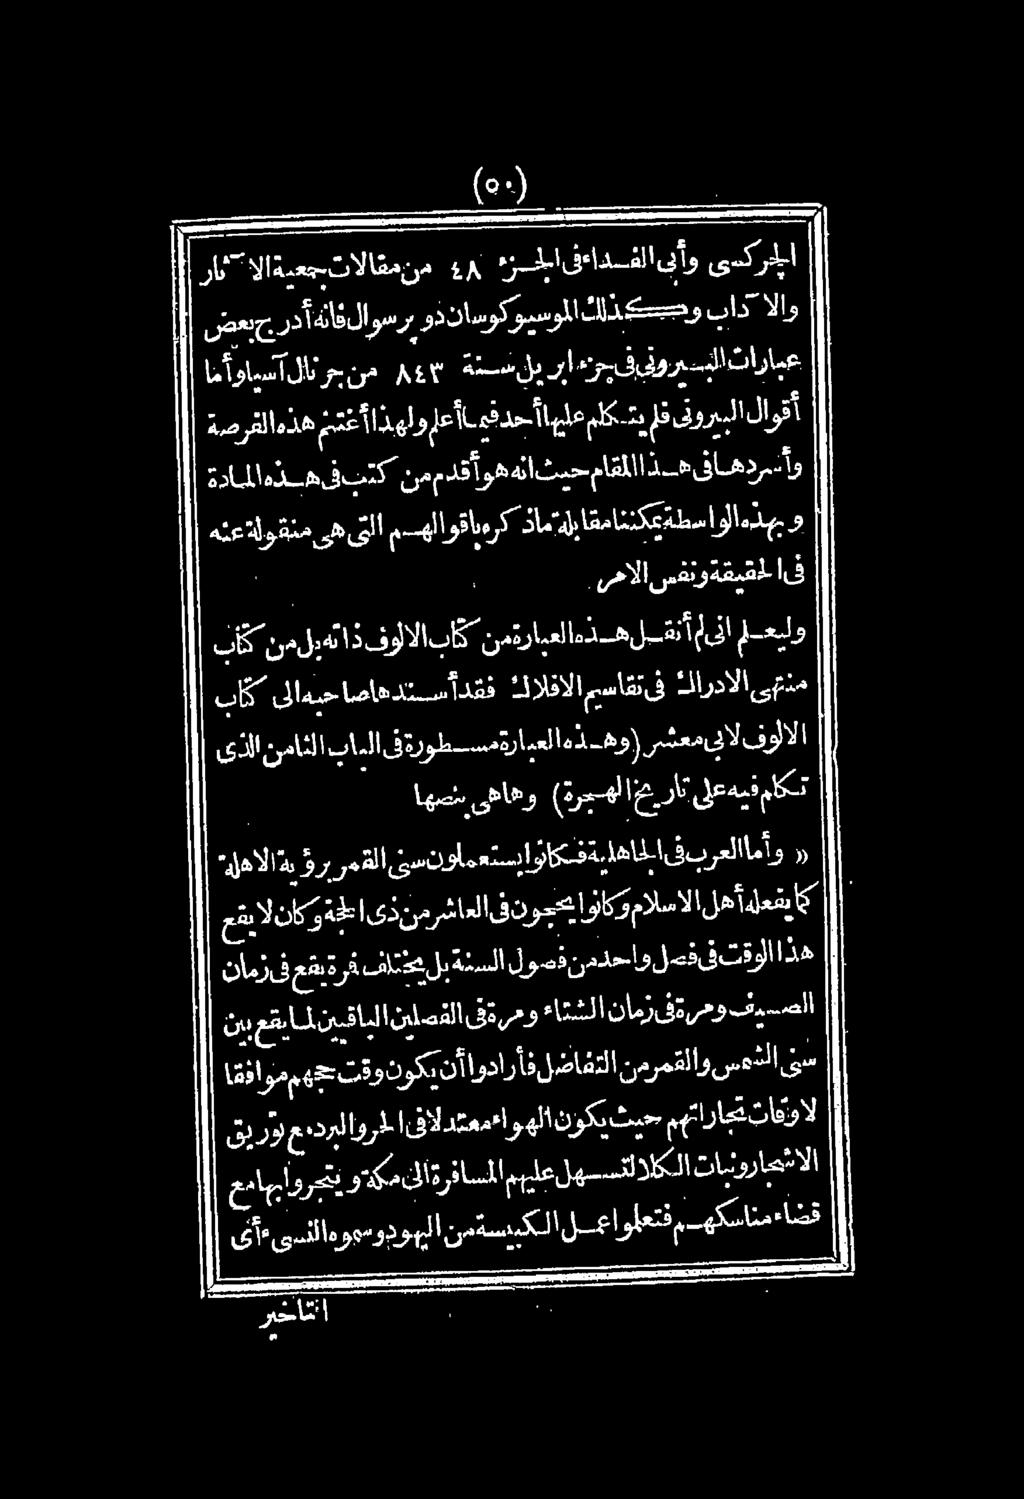 (٥٠)
الجركسى وأبى الفداء فى الجزء ٤٨ من مقالات جمعية الآثار
والآداب وكذلك الموسيو كوسان دو برسوال فانه أدرج بعض
عبارات البيرونى فى جزء ابريل سنة ٨٤٣ من جرنال آسيا وأما
أقوال البيرونى فلم يتكلم عليها أحد فيما أعلم ولهذا أغتنم هذه الفرصة
وأسردها فى هذا المقام حيث انه هو أقدم من كتب فى هذه المادة
وبهذه الواسطة يمكننا مقابلة ما ذكره باقوالهم التى هى منقولة عنه
فى الحقيقة ونفس الامر
وليعلم انى لم أنقل هذه العبارة من كتاب الالوف ذاته بل من كتاب
منتهى الادراك فى تقاسيم الافلاك فقد أسندها صاحبه الى كتاب
الالوف لابى معشر (وهذه العبارة مسطورة فى الباب الثامن الذى
تكلم فيه على تاريخ الهجرة) وهاهى بنصها
« وأما العرب فى الجاهلية فكانوا يستعملون سنى القمر برؤية الاهلة
كما يفعله أهل الاسلام وكانوا يحجون فى العاشر من ذى الحجة وكان لا يقع
هذا الوقت فى فصل واحد من فصول السنة بل يختلف فمرة يقع فى زمان
الصيف ومرة فى زمان الشتاء ومرة فى الفصلين الباقيين لما يقع بين
سنى الشمس والقمر من التفاضل فأرادوا أن يكون وقت حجهم موافقا
لاوقات تجاراتهم حيث يكون الهواء معتدلا فى الحر والبرد مع توريق
الاشجار ونبات الكلا لتسهل عليهم المسافرة الى مكة ويتجروا بها مع
قضاء مناسكهم فتعلموا عمل الكبيسة من اليهود وسموه النسىء أى
التاخير